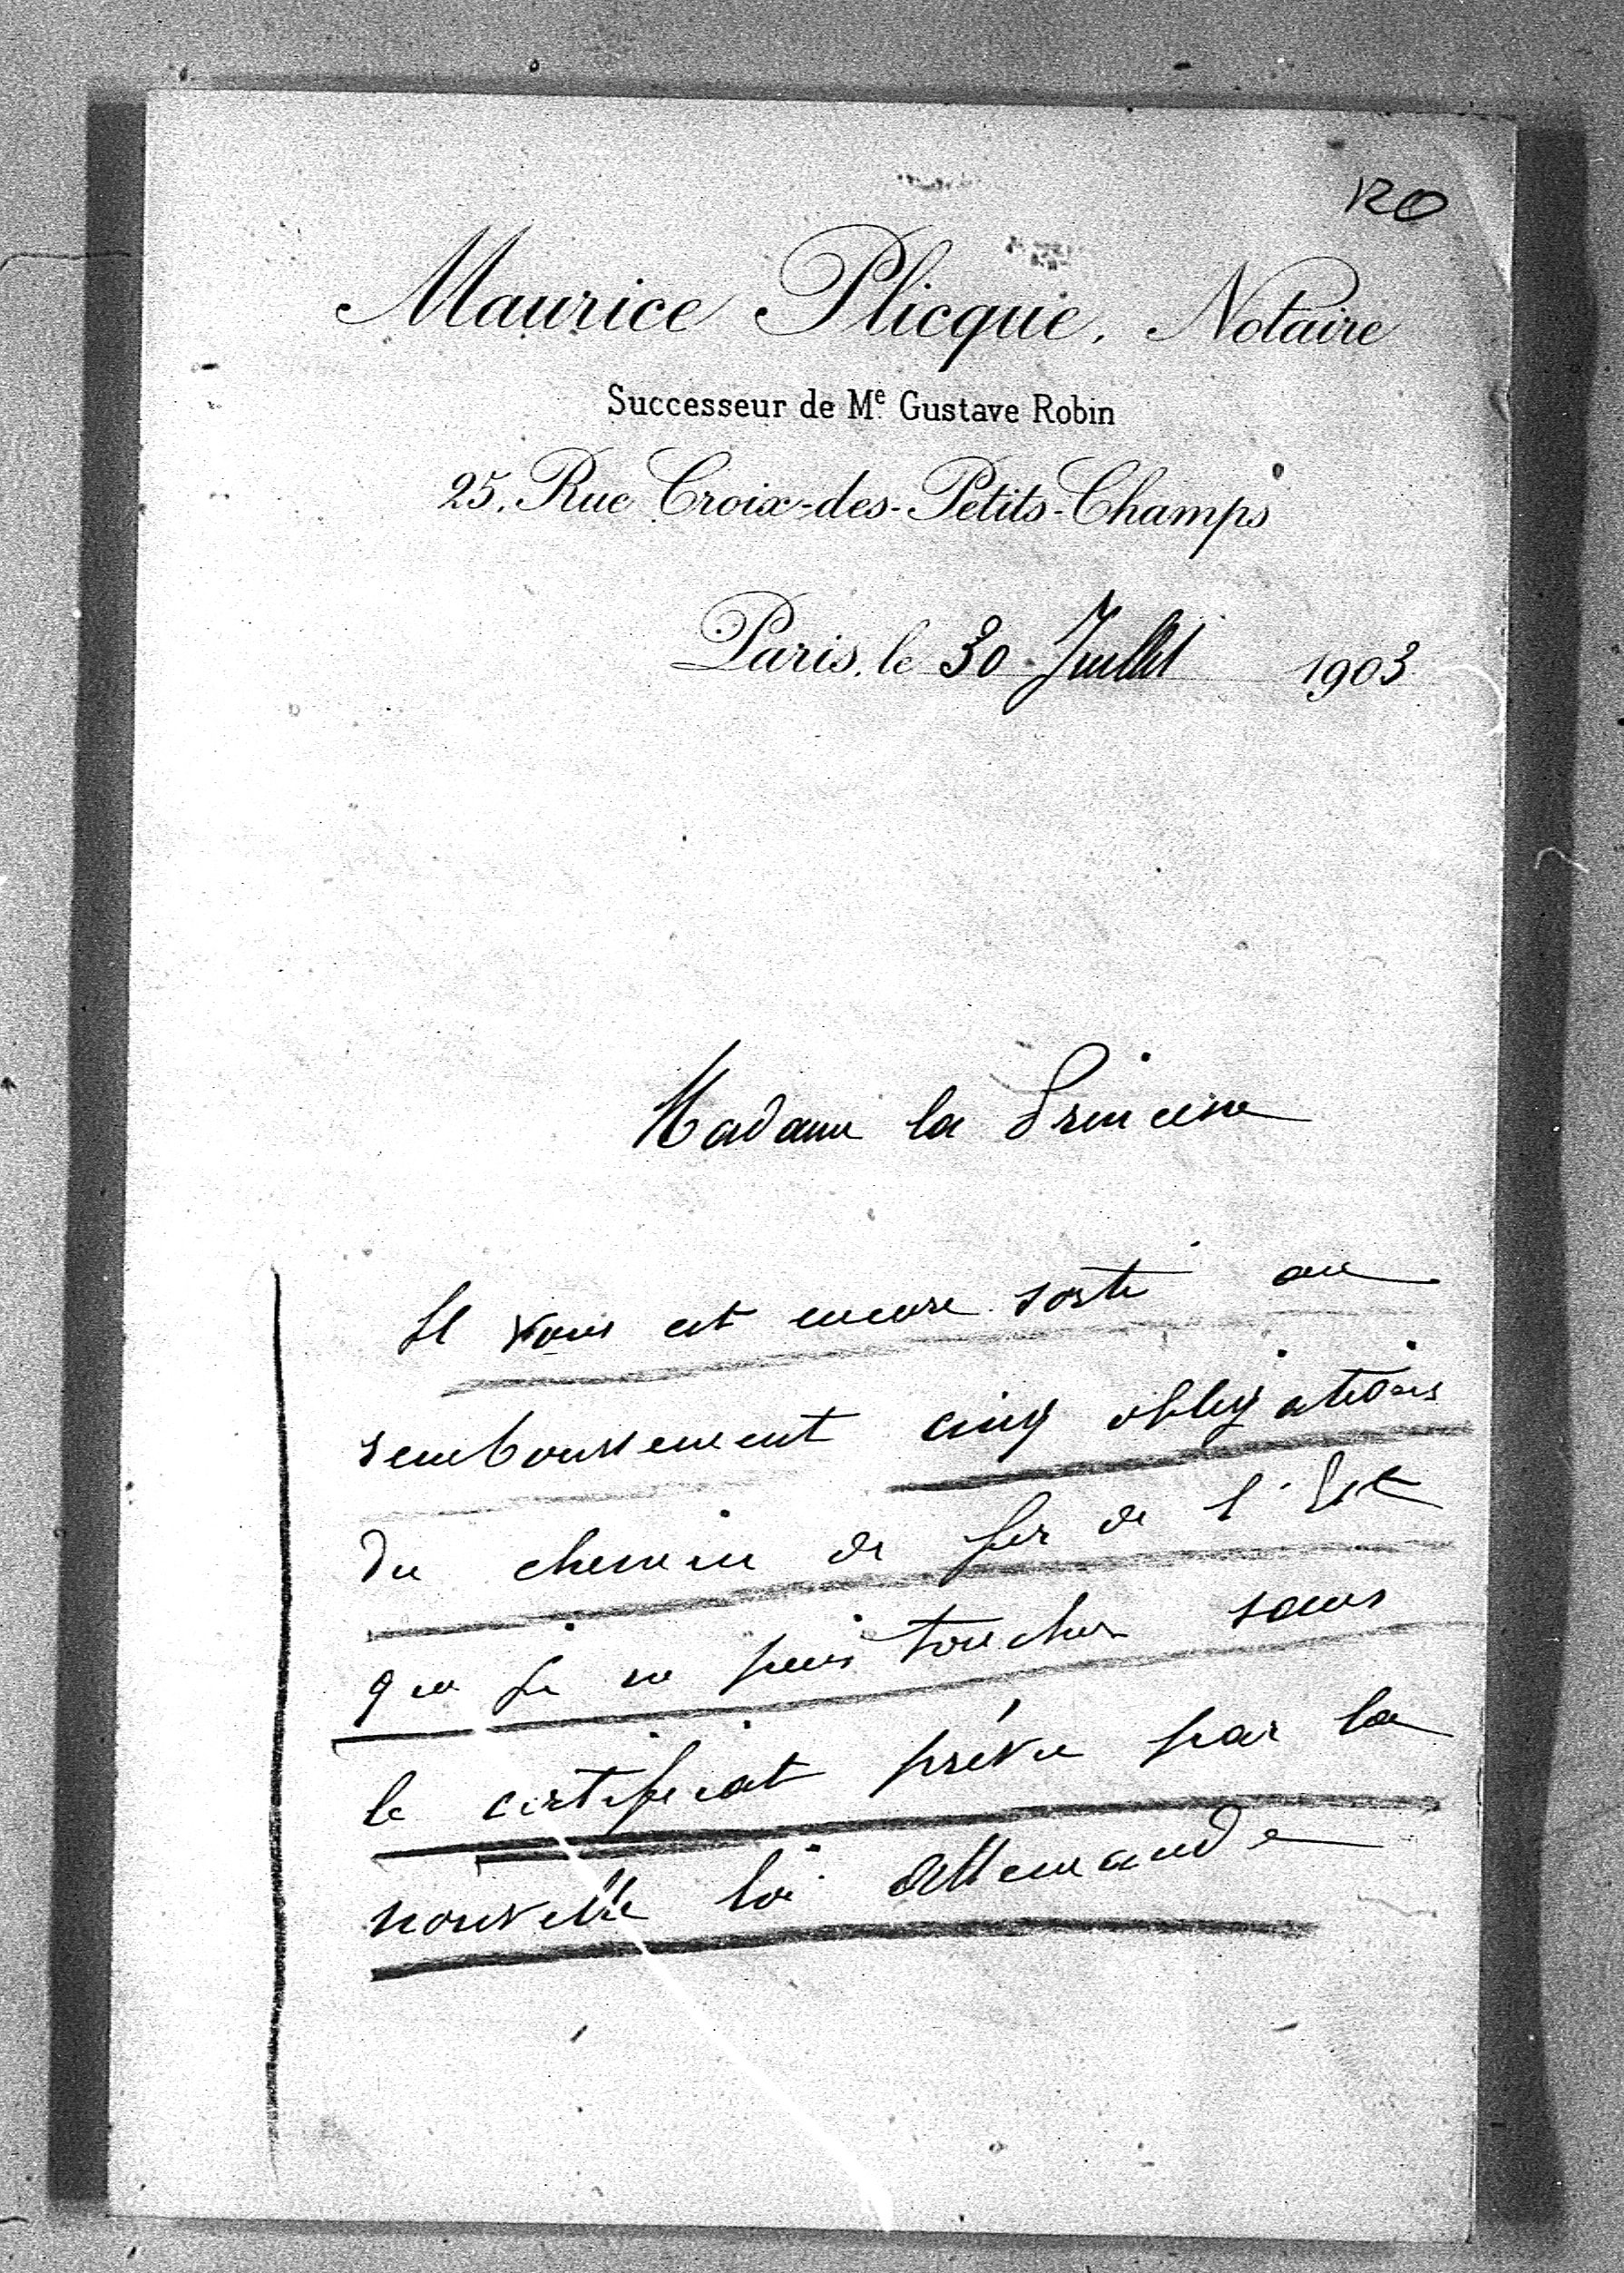 120
Maurice Plicque, Notaire
Successeur de Me Gustave Robin
25, Rue Croix-des-Petits-Champs
Paris, le 30 Juillet 1903
Madame la Princesse
Il vous est encore sorti au
remboursement cinq obligations
du chemin de fer de l'Est
que je ne puis toucher sans
le certificat prévu par la
nouvelle loi allemande